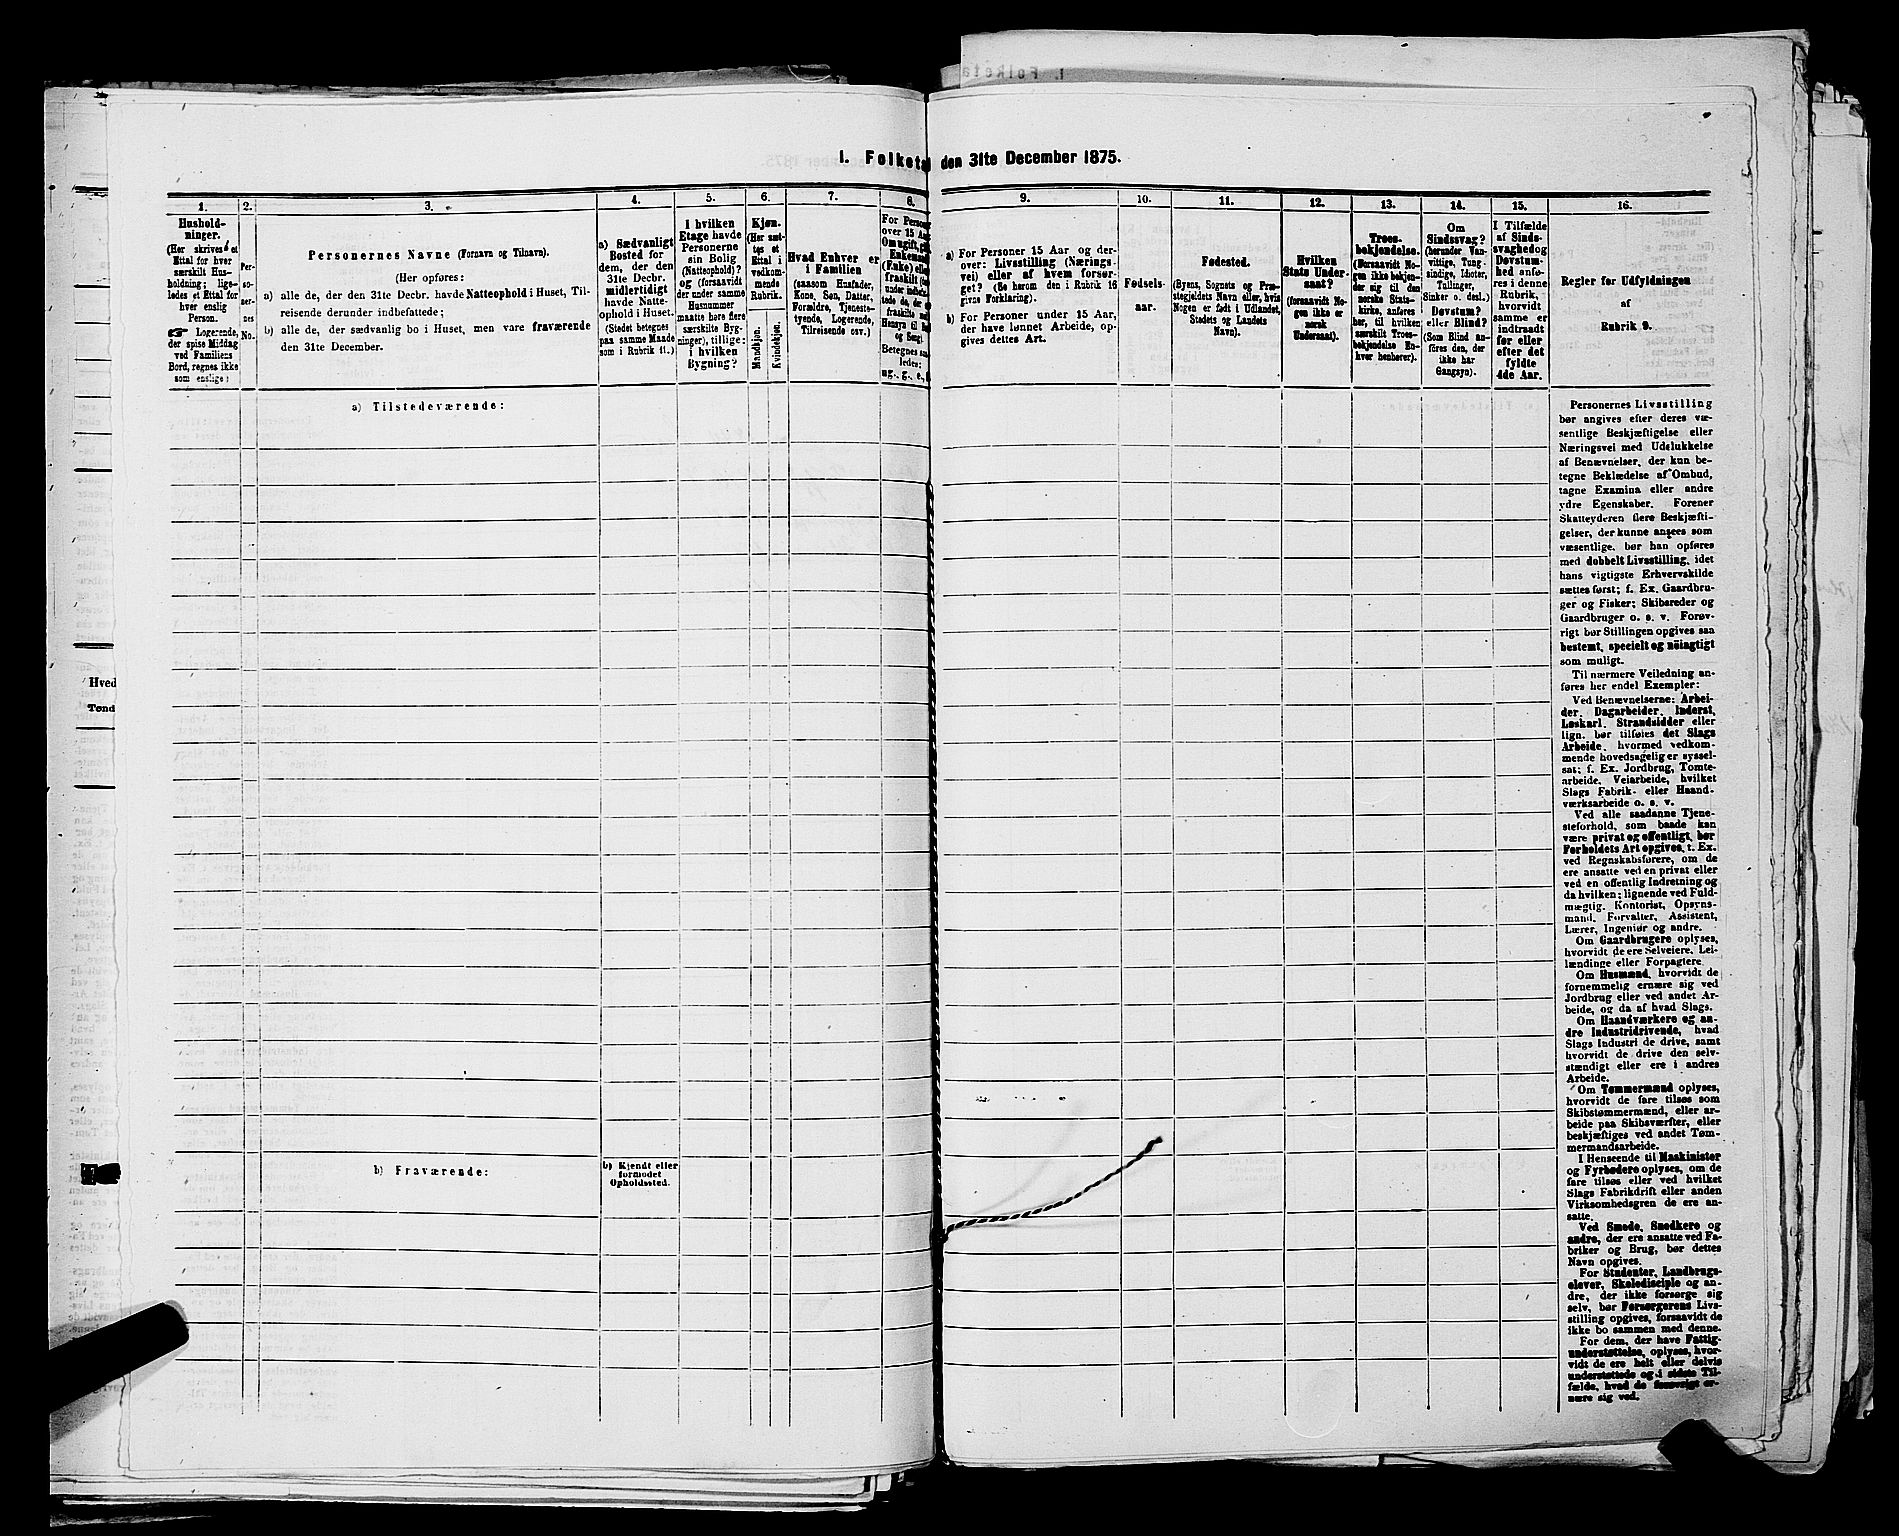 I. Folketal den 31te December 1875.
1.
Hushold-
ninger.
(Her skrives et
Ettal for hver
særskilt Hus-
holdning; lige-
ledes et Ettal for
hver enslig
Person.
☞ Logerende,
der spise Middag
ved Familiens
Bord, regnes ikke
som enslige)
2.
Per-
so-
ner-
nes
No.
3.
Personernes Navne (Fornavn og Tilnavn).
(Her opføres:
a) alle de, der den 31te Decbr. havde Natteophold i Huset, Til-
reisende derunder indbefattede;
b) alle de, der sædvanlig bo i Huset, men vare fraværende
den 31te December.
4.
a) Sædvanligt
Bosted for
dem, der den
31te Decbr.
midlertidigt
havde Natte-
ophold i Huset.
(Stedet betegnes
paa samme Maade
som i Rubrik 11.)
5.
I hvilken
Etage havde
Personerne
sin Bolig
(Natteophold)?
og (forsaavidt
der under samme
Husnummer
maatte høre flere
særskilte Byg-
ninger), tillige:
i hvilken
Bygning?
6.
Kjøn.
(Her sæt-
tes et
Ettal i
vedkom-
mende
Rubrik.
Mandkjøn.
Kvindekjøn.
7.
Hvad Enhver er
i Familien
(saasom Husfader,
Kone, Søn, Datter,
Forældre, Tjeneste-
tyende, Logerende,
Tilreisende osv.)
8.
For Person
over 15 Aa
Om ugift, gi
Enkeman
(Enke) elle
fraskilt
under
tede de, de
fraskilte
Hensyn til B
og Seng).
Betegnes saa
ledes:
ug., g., e., f
9.
a) For Personer 15 Aar og der-
over: Livsstilling (Nærings-
vei) eller af hvem forsør-
get? (Se herom den i Rubrik 16
givne Forklaring).
b) For Personer under 15 Aar,
der have lønnet Arbeide, op-
gives dettes Art.
10.
Fødsels-
aar.
11.
Fødested.
(Byens, Sognets og Præ-
stegjeldets Navn eller, hvis
Nogen er født i Udlandet,
Stedets og Landets
Navn).
12.
Hvilken
Stats Under-
saat?
(forsaavidt No-
gen ikke er
norsk
Undersaat).
13.
Troes-
bekjendelse.
(Forsaavidt No-
gen ikke bekjen-
der sig til den
norske Stats-
kirke, anføres
her, til hvilken
særskilt Troes-
bekjendelse En-
hver henhører).
14.
Om
Sindssvag?
(herunder Van-
vittige, Tung-
sindige, Idioter,
Tullinger,
Sinker o. desl.)
Døvstum?
eller Blind?
(Som Blind an-
føres den, der
ikke har
Gangsyn).
15.
I Tilfælde
af Sinds-
svaghed og
Døvstum-
hed anfø-
res i denne
Rubrik,
hvorvidt
samme er
indtraadt
før eller
efter det
fyldte
4de Aar.
16.
Regler for Udfyldningen
af
Rubrik 9.
a) Tilstedeværende:
b) Fraværende:
b) Kjendt eller
formodet
Opholdssted.
Personernes Livsstilling
bør angives efter deres væ-
sentlige Beskjæftigelse eller
Næringsvei med Udslukkelse
af Benævnelser, der kun be-
tegne Beklædelse af Ombud,
tagne Examina eller andre
ydre Egenskaber. Forener
Skatteyderen flere Beskjæfti-
gelser, der kunne ansees som
væsentlige, bør han opføres
med dobbelt Livsstilling, idet
hans vigtigste Erhvervskilde
sættes først; f. Ex. Gaardbru-
ger og Fisker; Skibsreder og
Gaardbruger o. s. v. Forøv-
rigt bør Stillingen opgives saa
bestemt, specielt og nöiagtigt
som muligt.
Til nærmere Veiledning an-
føres her endel Exempler:
Ved Benævnelserne: Arbei-
der, Dagarbeider, Inderst,
Løskarl, Strandsidder eller
lign. bør tilføies det Slags
Arbeide, hvormed vedkom-
mende hovedsagelig er syssel-
sat; f. Ex. Jordbrug, Tomte-
arbeide, Veiarbeide, hvilket
Slags Fabrik- eller Haand-
værksarbeide o. s. v.
Ved alle saadanne Tjene-
steforhold, som baade kan
være privat og offentligt, bør
Forholdets Art opgives, f. Ex.
ved Regnskabsførere, om de
ere ansatte ved en privat eller
ved en offentlig Indretning og
da hvilken; lignende ved Fuld-
mægtig, Kontorist, Opsyns-
mand, Forvalter, Assistent,
Lærer, Ingeniør og andre.
Om Gaardbrugere oplyses,
hvorvidt de ere Selveiere, Lei-
lændinge eller Forpagtere.
Om Husmænd, hvorvidt de
fornemmelig ernære sig ved
Jordbrug eller ved andet Ar-
beide, og da af hvad Slags.
Om Haandværkere og an-
dre Industridrivende, hvad
Slags Industri de drive, samt
hvorvidt de drive den selv-
stændigt eller ere i andres
Arbeide.
Om Tømmermænd oplyses,
hvorvidt de fare tilsøs som
Skibstømmermænd, eller ar-
beide paa Skibsværfter, eller
beskjæftiges ved andet Tøm-
mermandsarbeide.
I Henseende til Maskinister
og Fyrbødere oplyses, om de
fare tilsøs eller ved hvilket
Slags Fabrikdrift eller anden
Virksomhedsgren de ere an-
satte.
Ved Smede, Snedkere og
andre, der ere ansatte ved Fa-
briker og Brug, bør dettes
Navn opgives.
For Studenter, Landbrugs-
elever, Skoledisciple og an-
dre, der ikke forsørge sig
selv, bør Forsørgerens Livs-
stilling opgives, forsaavidt de
ikke bo sammen med denne.
For dem, der have Fattig-
understøttelse, oplyses, hvor-
vidt de ere helt eller delvis
understøttede og i sidste Til-
fælde, hvad de forøvrigt er-
nære sig ved.
Hved
Tønd